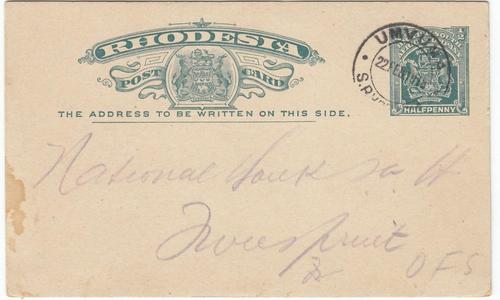 RHODESIA
POST CARD
THE ADDRESS TO BE WRITTEN ON THIS SIDE.
UMVUMA
S.R
½
HALFPENNY
National Bank
Tweespruit
OFS